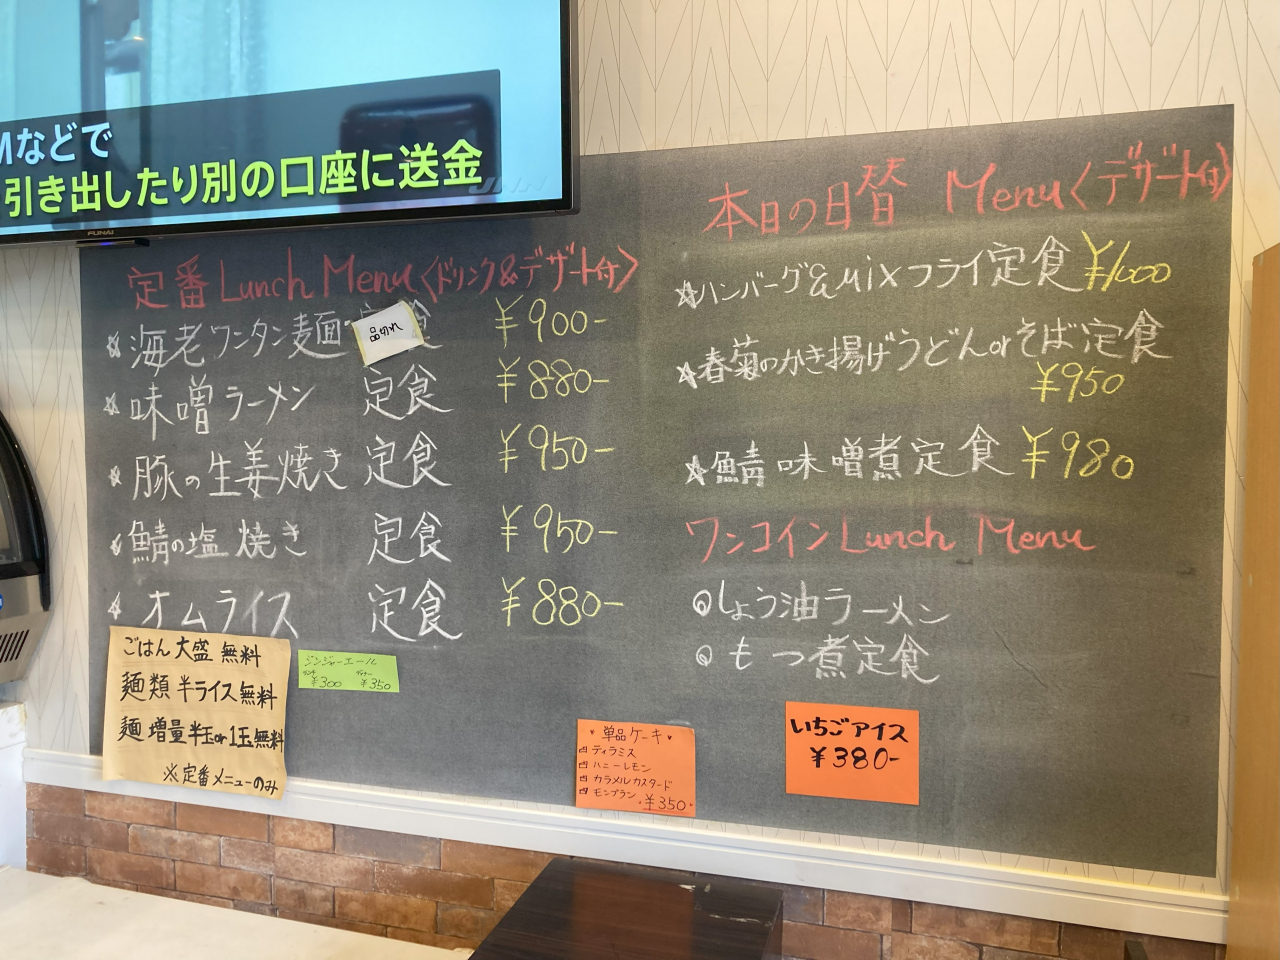 Mなどで
引き出したり別の口座に送金
FUNAI
定番 Lunch Menu〈ドリンク&デザート付〉
☆海老ワンタン麺 定食 ¥900-
品切れ
☆味噌ラーメン 定食 ¥880-
☆豚の生姜焼き 定食 ¥950-
☆鯖の塩焼き 定食 ¥950-
☆オムライス 定食 ¥880-
ごはん大盛 無料
麺類半ライス無料
麺増量半玉or1玉無料
※定番メニューのみ
ジンジャーエール
ランチ ディナー
¥300 ¥350
本日の日替 Menu〈デザート付〉
☆ハンバーグ&Mixフライ定食 ¥1000
☆春菊のかき揚げうどんorそば定食
¥950
☆鯖味噌煮定食 ¥980
ワンコイン Lunch Menu
◎しょう油ラーメン
◎もつ煮定食
♥単品ケーキ♥
ティラミス
ハニーレモン
カラメルカスタード
モンブラン
・¥350・
いちごアイス
¥380-